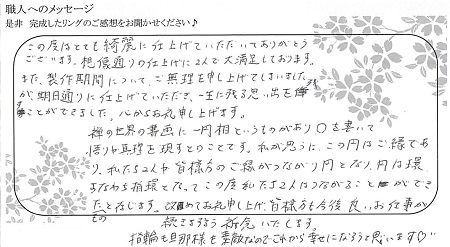 職人へのメッセージ
是非 完成したリングのご感想をお聞かせください♪
この度はとても綺麗に仕上げていただいてありがとう
ございます。想像通りの仕上がりに2人で大満足しております。
また、製作期間について、ご無理を申し上げてしまいました
が、期日通りに仕上げていただき、一生に残る思い出を残す
ことができました。心からお礼申し上げます。
禅の世界の書画に一円相というものがあり〇を書いて
悟りや真理を現すとのことです。私が思うに、この円はご縁であ
り、私たち2人や皆様方のご縁がつながり円となり、円は環
すなわち指環となって、この度私たち2人はつながることができ
たものと存じます。改めてお礼申し上げ、皆様方も今後良いお仕事が
続きますよう祈念いたします。
指輪も旦那様も素敵なのでこれから幸せになろうと思います♡